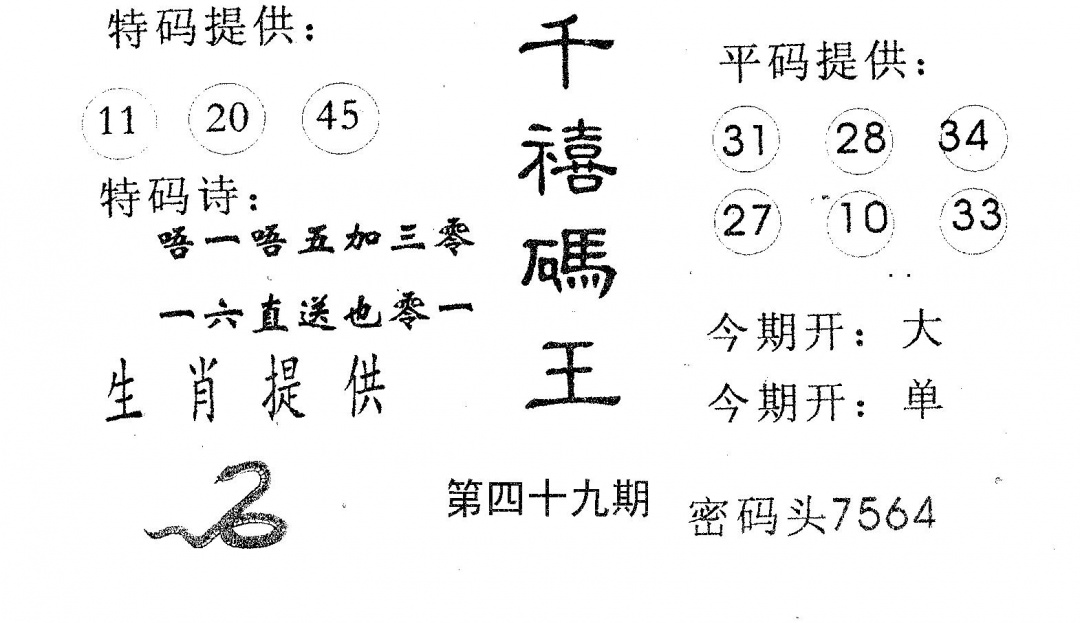 特码提供：
11 20 45
特码诗：
唔一唔五加三零
一六直送也零一
生肖提供
千禧碼王
第四十九期
平码提供：
31 28 34
27 10 33
今期开：大
今期开：单
密码头7564